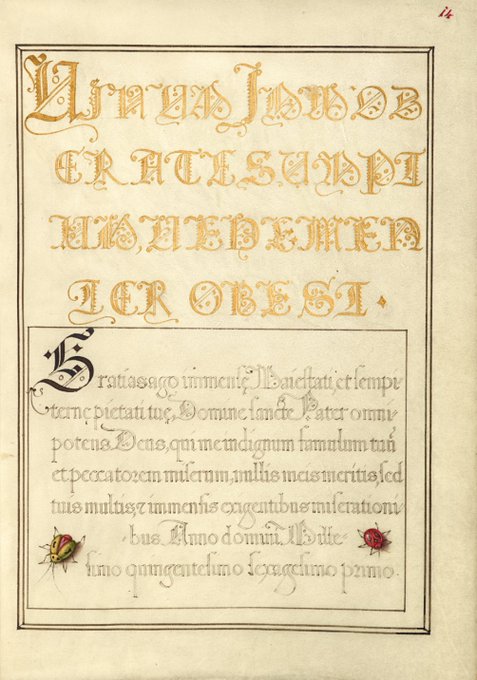 14
VINUM IMMOD
ERATE SUMPT
UM, UEHEMEN
TER OBEST.
Gratias ago inmensę Maiestati, et sempi-
ternę pietati tuę, Domine sancte Pater omni-
potens Deus, qui me indignum famulum tuũ
et peccatorem miserum, nullis meis meritis, sed
tuis multis, & immensis exigentibus miserationi-
bus. Anno domini Mille-
simo quingentesimo sexagesimo primo.